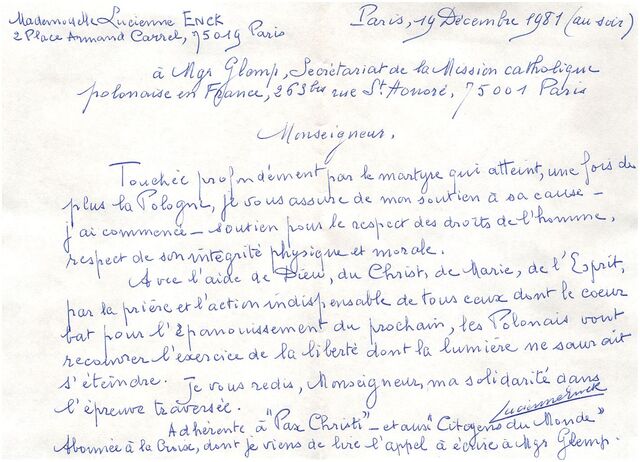 Mademoiselle Lucienne ENCK
2 Place Armand Carrel, 75019 Paris
Paris, 19 Décembre 1981 (au soir)
à Mgr Glemp, Secrétariat de la Mission catholique
polonaise en France, 263bis rue St Honoré, 75001 Paris
Monseigneur,
Touchée profondément par le martyre qui atteint, une fois de
plus la Pologne, je vous assure de mon soutien à sa cause -
j'ai commencé - soutien pour le respect des droits de l'homme,
respect de son intégrité physique et morale.
Avec l'aide de Dieu, du Christ, de Marie, de l'Esprit,
par la prière et l'action indispensable de tous ceux dont le coeur
bat pour l'épanouissement du prochain, les Polonais vont
recouvrer l'exercice de la liberté dont la lumière ne saurait
s'éteindre. Je vous redis, Monseigneur, ma solidarité dans
l'épreuve traversée.
Lucienne Enck
Adhérente à "Pax Christi" - et aux "Citoyens du Monde"
Abonnée à la Croix, dont je viens de lire l'appel à écrire à Mgr Glemp.